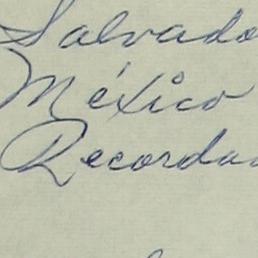 Salvado
México
Recorda